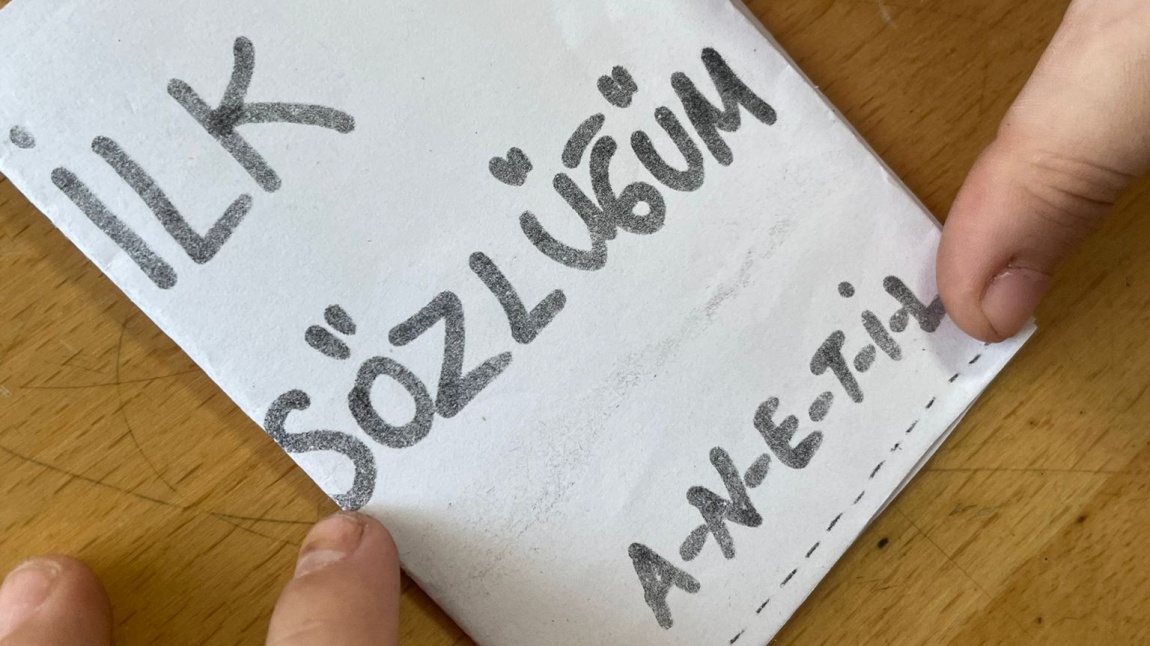 İLK
SÖZLÜĞÜM
A-N-E-T-İ-L